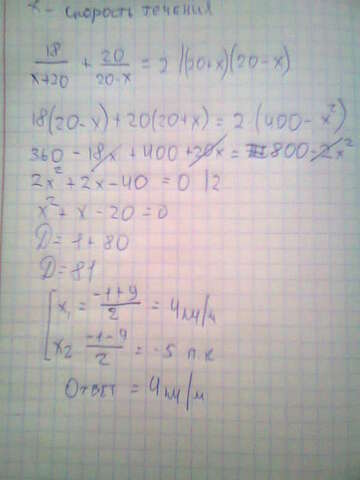 x - скорость течения
18/(x+20) + 20/(20-x) = 2 |(20+x)(20-x)
18(20-x)+20(20+x) = 2·(400-x²)
360 - 18x + 400 + 20x = 800 - 2x²
2x² + 2x - 40 = 0 |2
x² + x - 20 = 0
D = 1 + 80
D = 81
x₁ = (-1+9)/2 = 4 км/ч
x₂ (-1-9)/2 = -5 п.к
Ответ = 4 км/ч